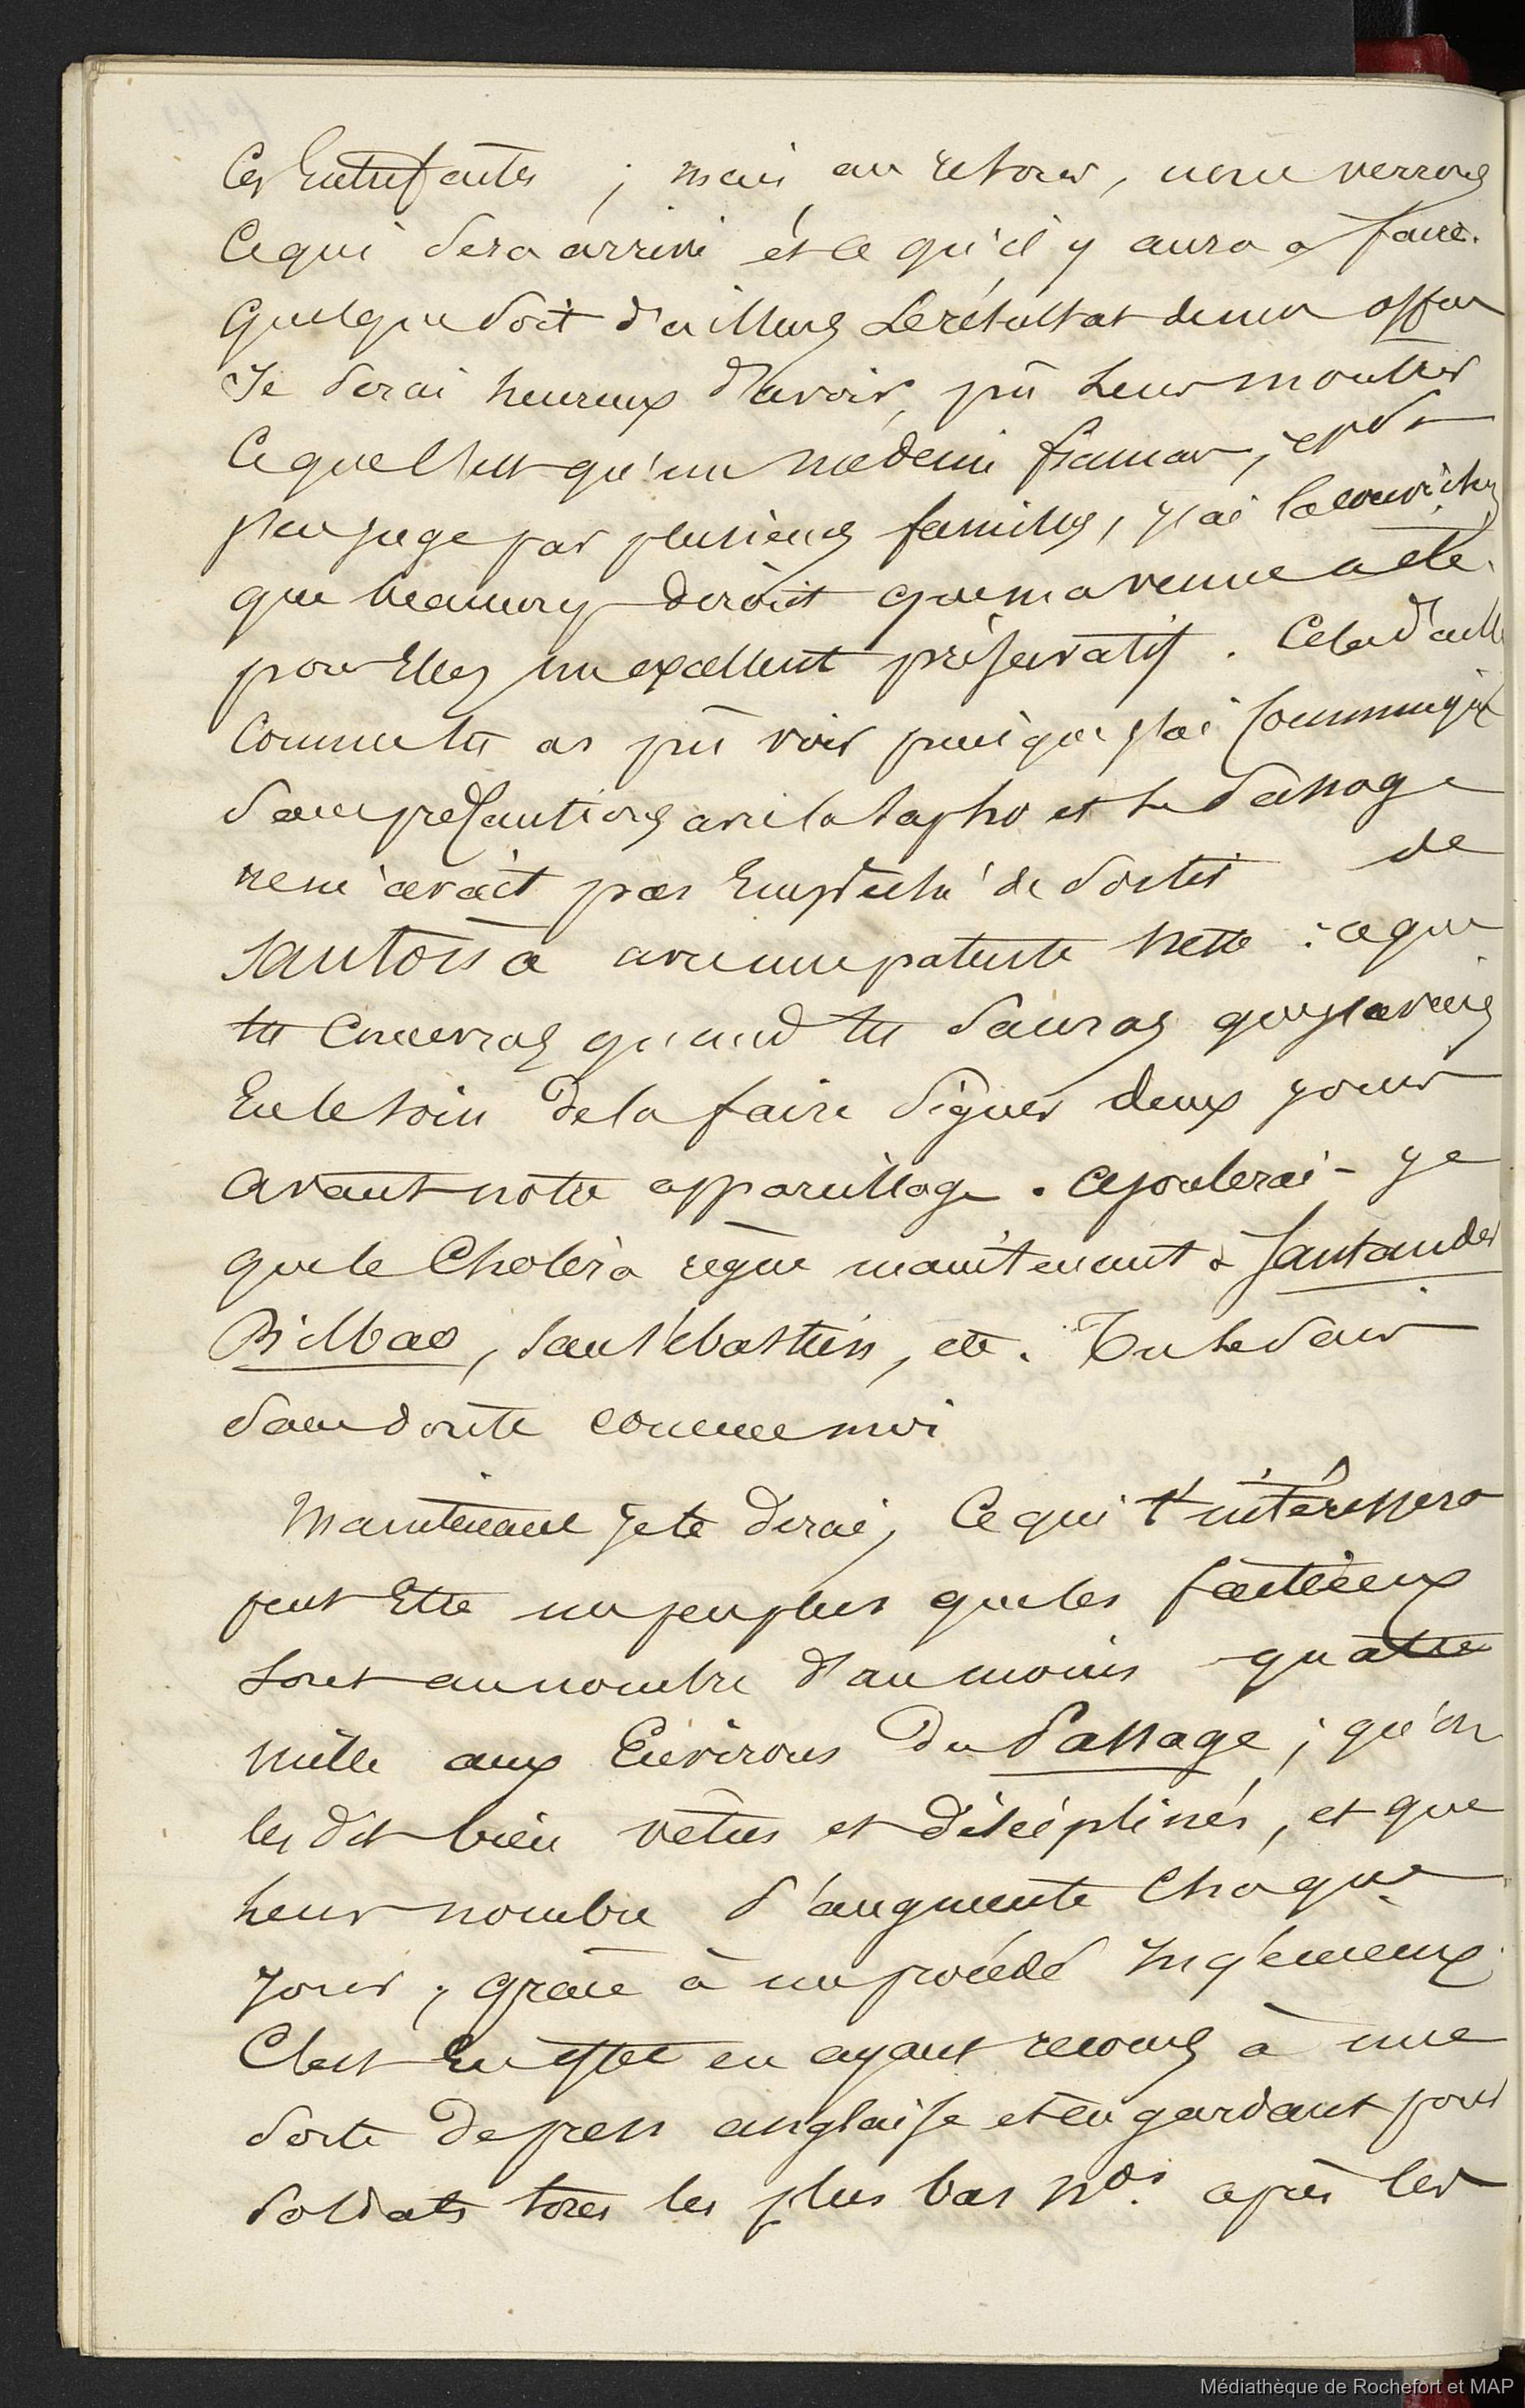 Ces Entrefaites ; mais au retour, nous verrons
Ce qui sera arrivé et ce qu'il y aura à faire.
Quel que soit d'ailleurs le résultat de mes offres
Je serai heureux d'avoir pû leur montrer
Ce que c'est qu'un médecin français, et si
j'en juge par plusieurs familles, j'ai la conviction
que beaucoup diront que ma venue a été
pour Elles un excellent préservatif. Cela d'ailleurs
Comme tu as pû voir puisque j'ai communiqué
sans précautions avec la Sapho et le Passage
ne m'avait pas Empêché de sortir de
Santoña avec une patente nette : ce que
tu Concevras quand tu sauras que j'avais
Eu le soin de la faire signer deux jours
avant notre appareillage. ajouterai-je
que le Choléra règne maintenant à Santander
Bilbao, San Sébastien, etc. Tu le sais
sans doute comme moi
Maintenant je te dirai, Ce qui t'intéressera
peut Etre un peu plus que les factieux
sont au nombre d'au moins quatre
mille aux Environs du Passage ; qu'on
les dit bien vêtus et disciplinés, et que
leur nombre s'augmente Chaque
jour, grâce à un procédé Ingénieux.
C'est En effet en ayant recours à une
sorte de press anglaise et en gardant pour
soldats tous les plus bas Nos. après les